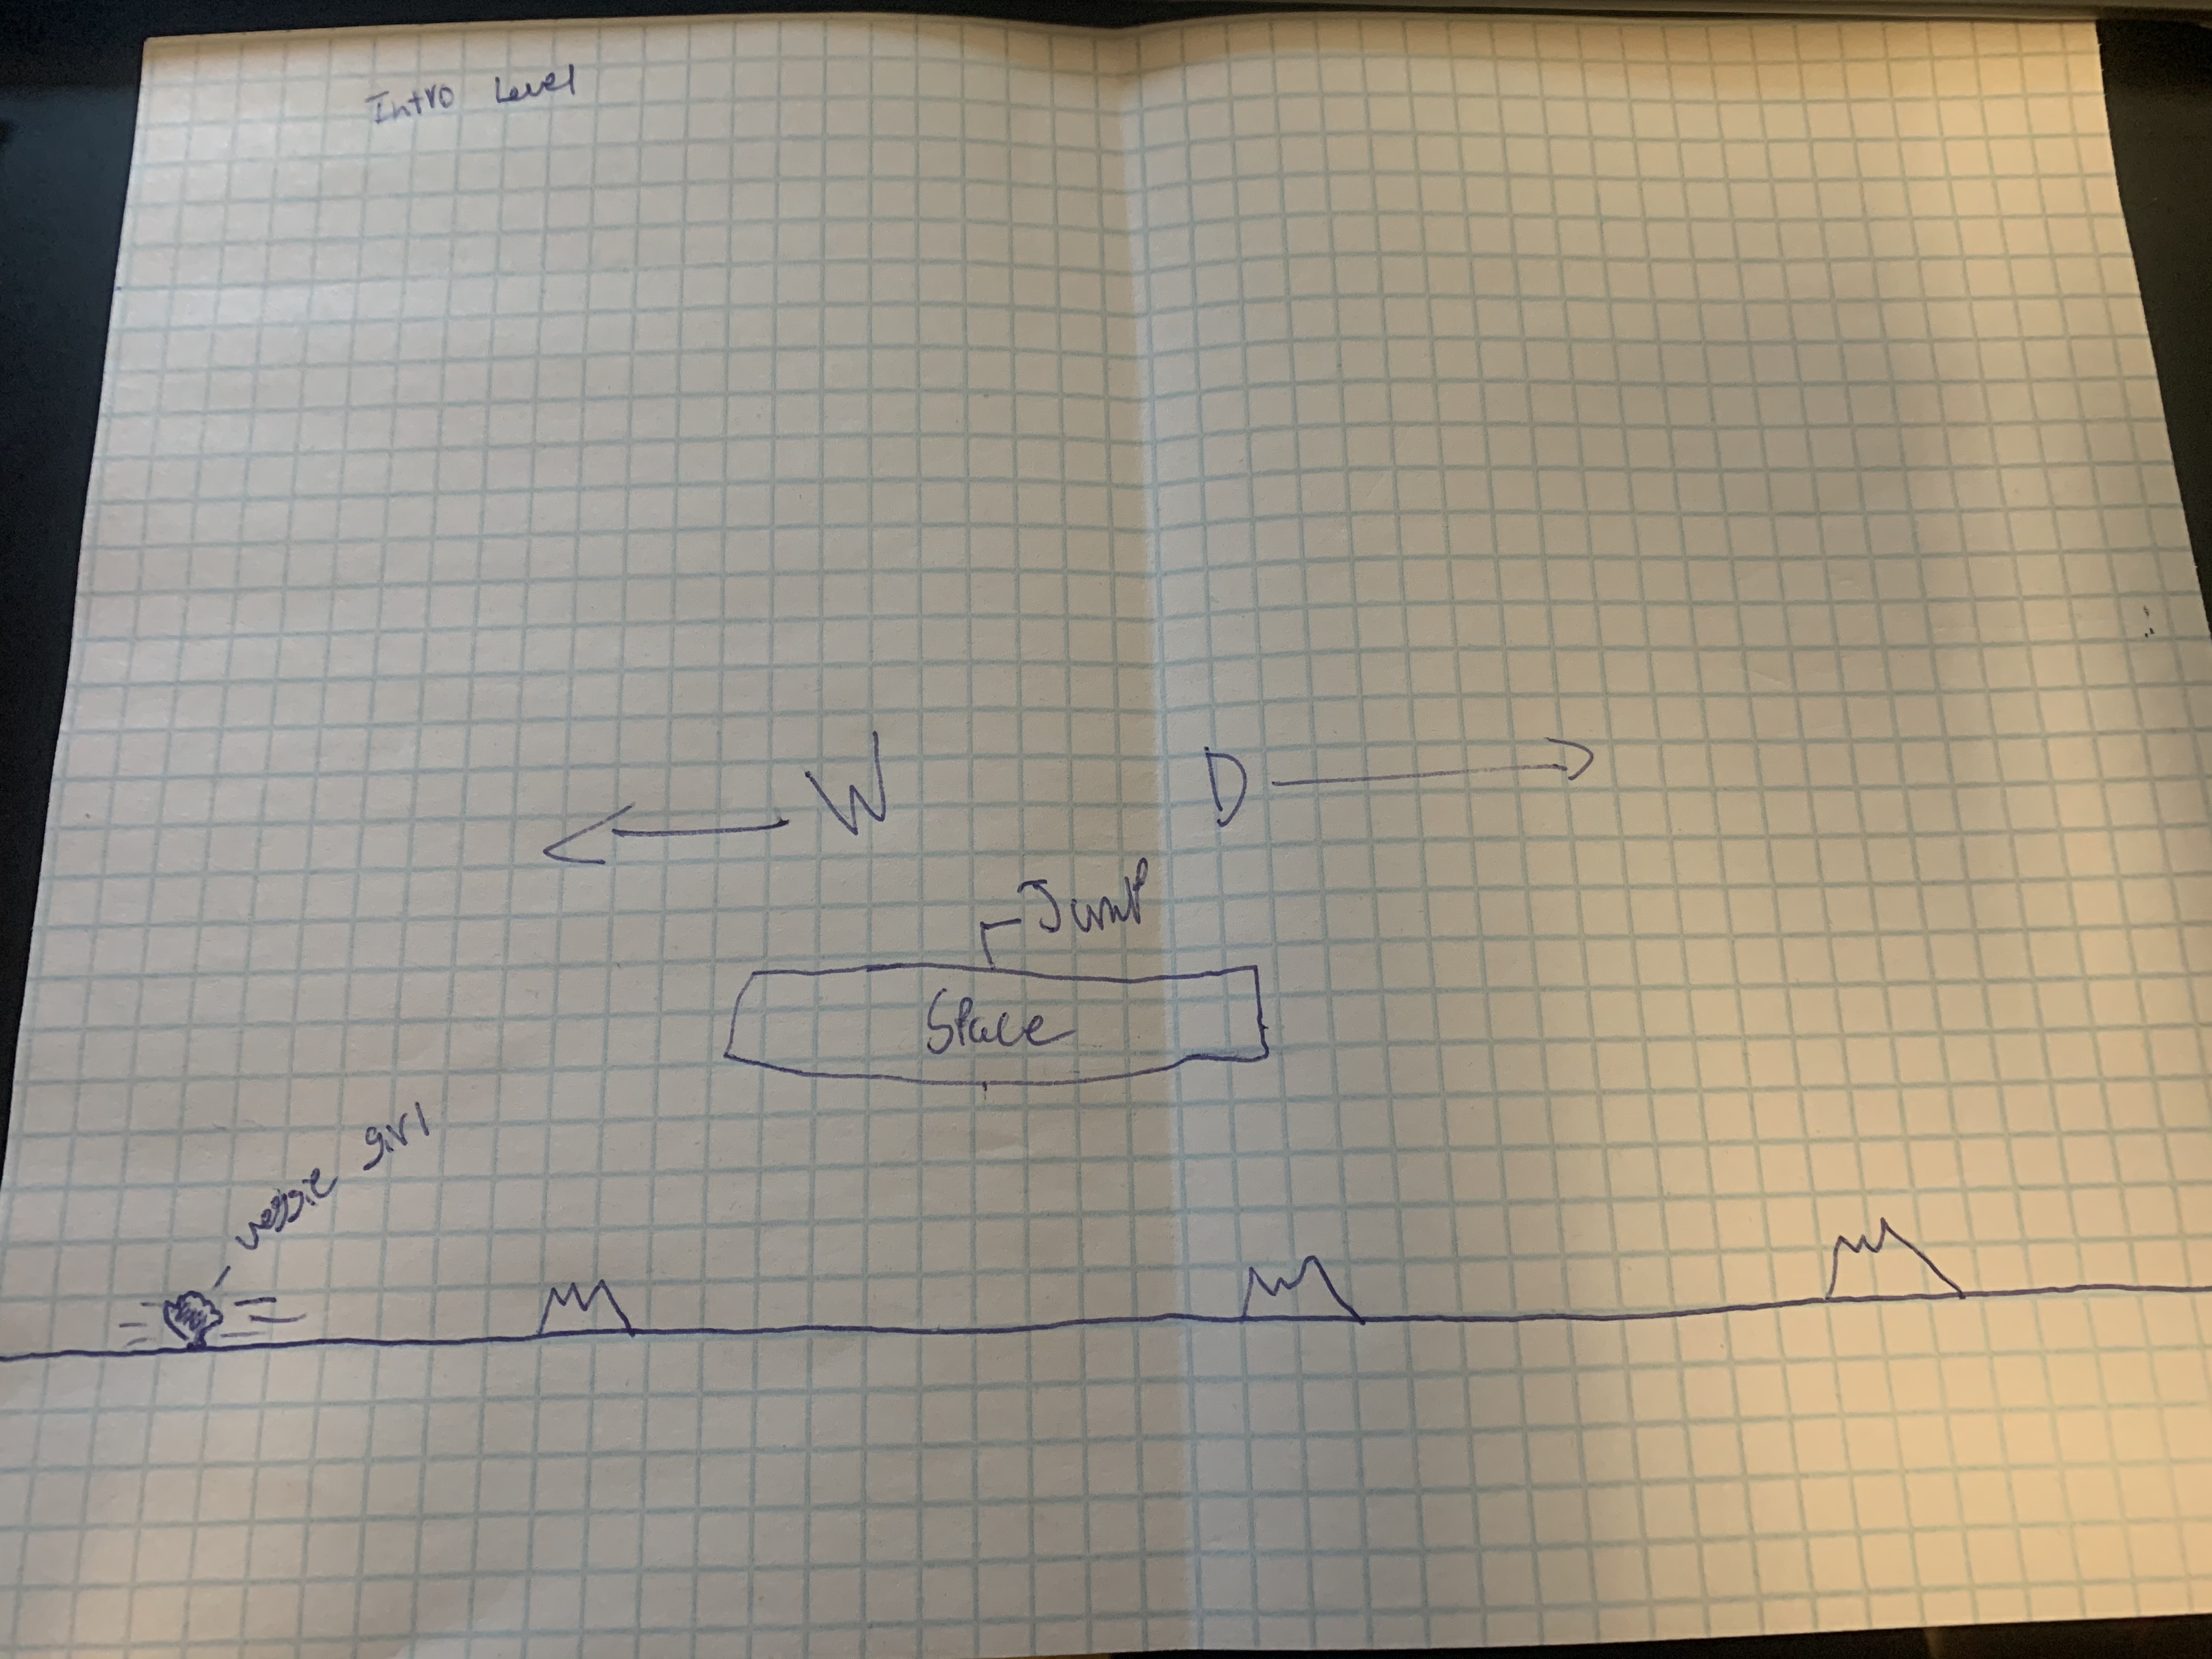 Intro Level
W D
Jump
Space
veggie girl